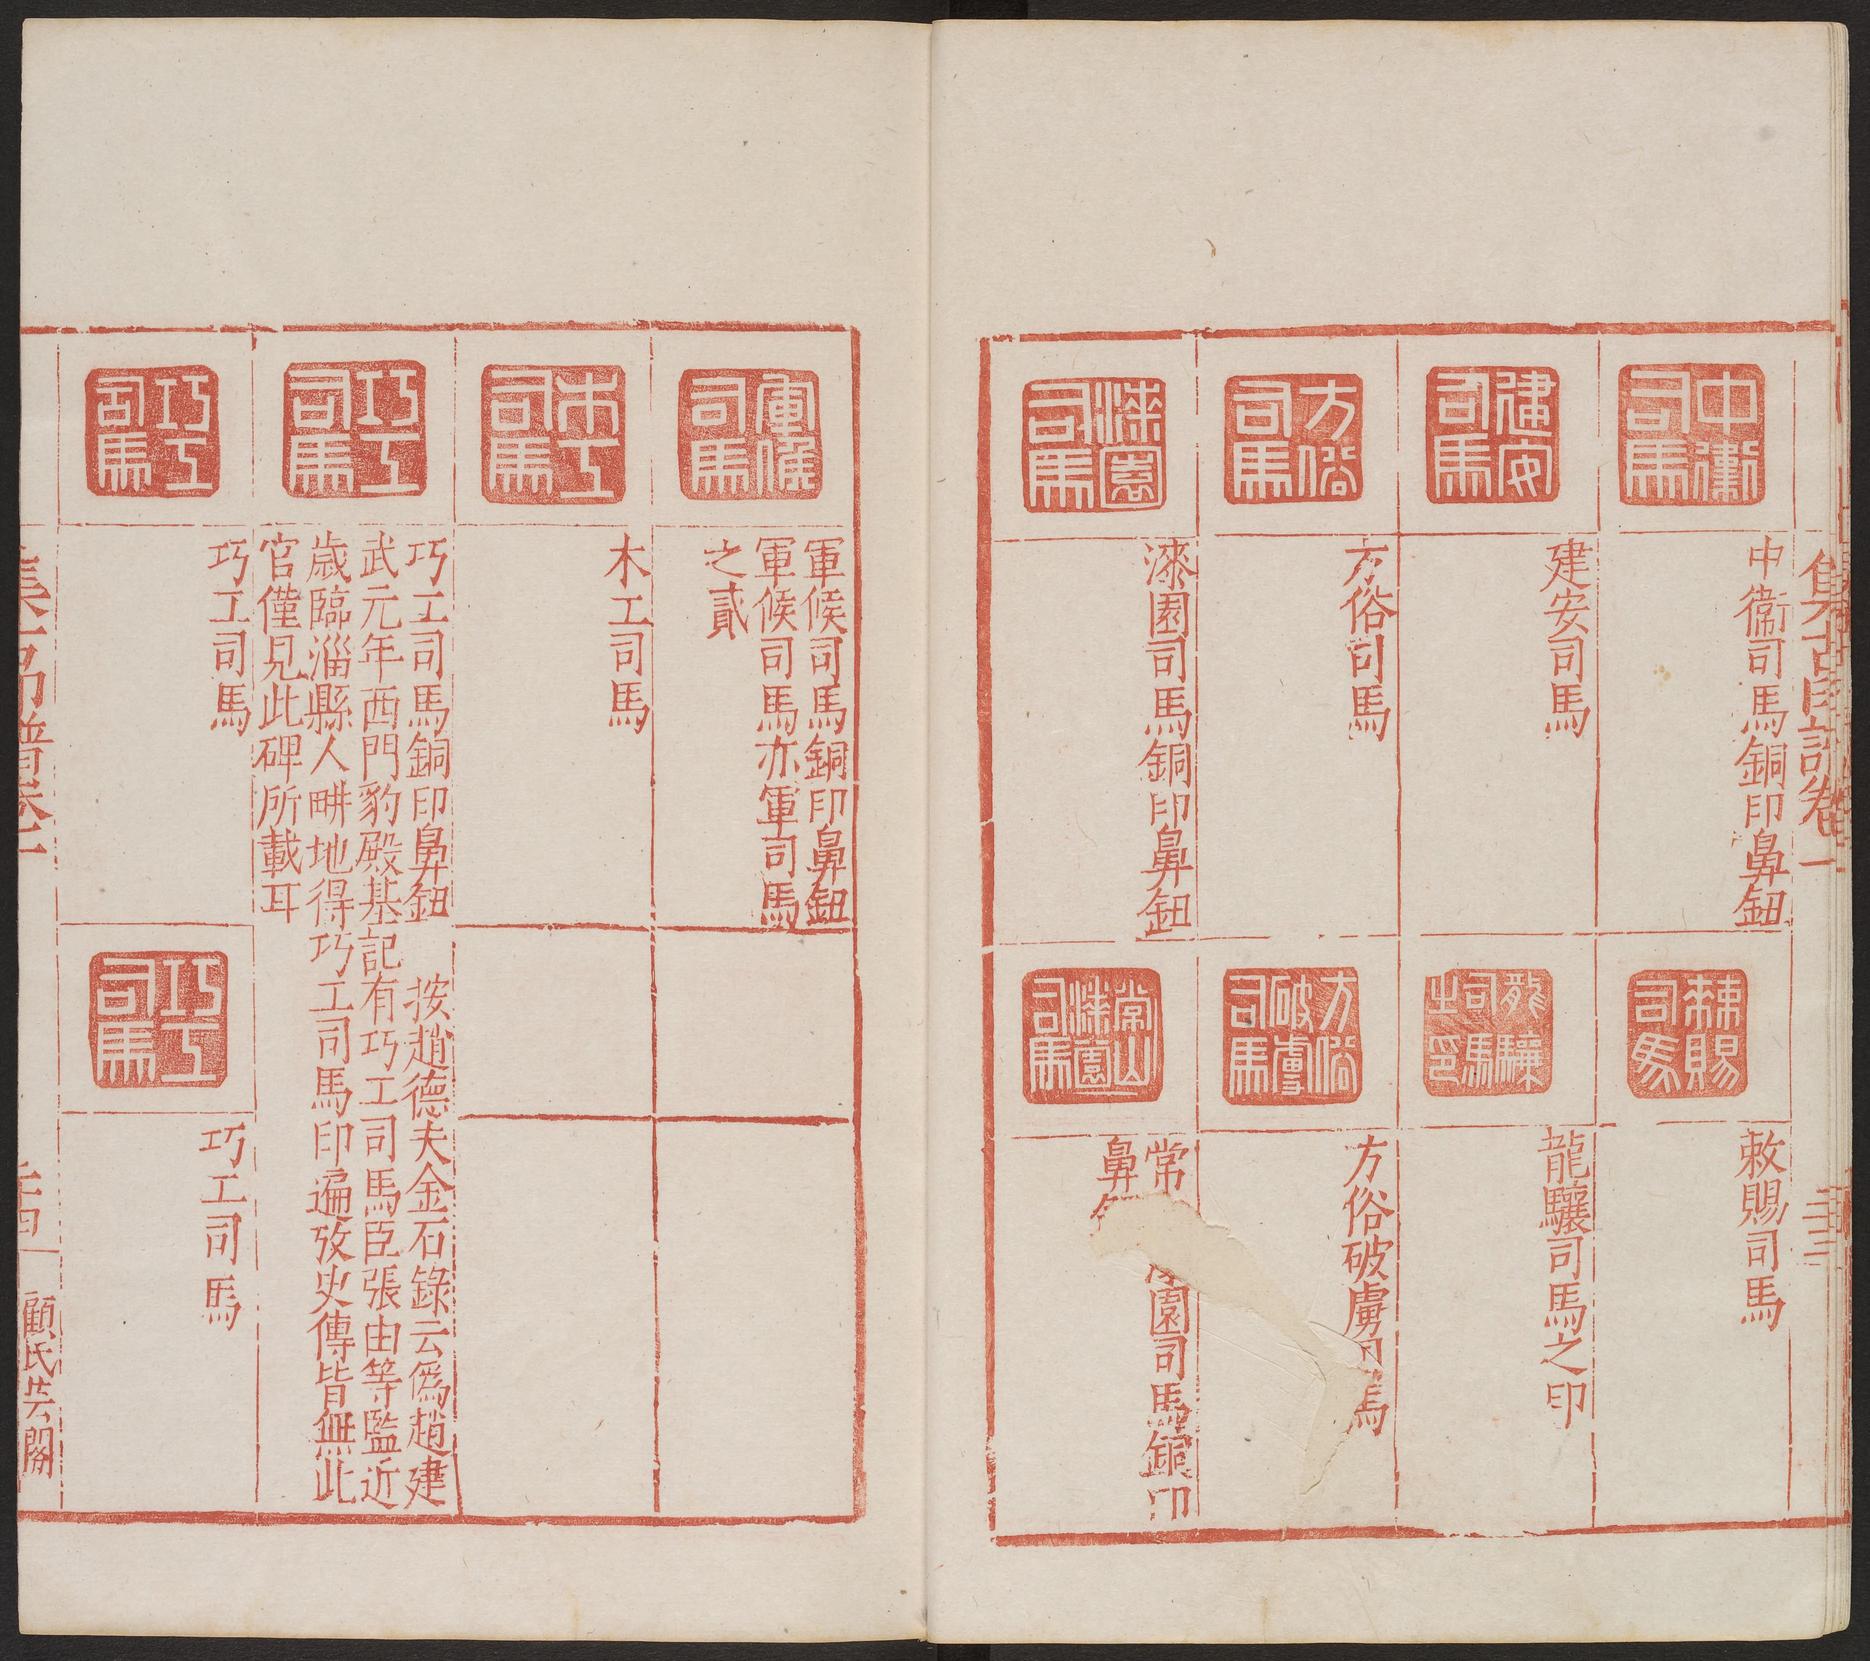 集古印譜卷一
中衞司馬
中衞司馬銅印鼻鈕
建安司馬
建安司馬
方俗司馬
方俗司馬
漆園司馬
漆園司馬銅印鼻鈕
敕賜司馬
敕賜司馬
龍驤司馬之印
龍驤司馬之印
方俗破虜司馬
方俗破虜司馬
常山漆園司馬
常
園司馬銅印
鼻
軍候司馬
軍候司馬銅印鼻鈕
軍候司馬亦軍司馬
之貳
木工司馬
木工司馬
巧工司馬
巧工司馬銅印鼻鈕 按趙德夫金石錄云僞趙建
武元年西門豹殿基記有巧工司馬臣張由等監近
歲臨淄縣人畊地得巧工司馬印遍攷史傳皆無此
官僅見此碑所載耳
巧工司馬
巧工司馬
巧工司馬
巧工司馬
集古印譜卷一
顧氏芸閣